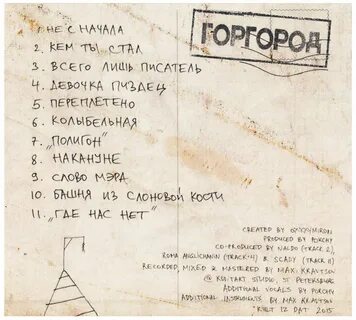 ГОРГОРОД
1. НЕ С НАЧАЛА
2. КЕМ ТЫ СТАЛ
3. ВСЕГО ЛИШЬ ПИСАТЕЛЬ
4. ДЕВОЧКА ПИЗДЕЦ
5. ПЕРЕПЛЕТЕНО
6. КОЛЫБЕЛЬНАЯ
7. "ПОЛИГОН"
8. НАКАНУНЕ
9. СЛОВО МЭРА
10. БАШНЯ ИЗ СЛОНОВОЙ КОСТИ
11. "ГДЕ НАС НЕТ"
CREATED BY OXXXYMIRON
PRODUCED BY PORCHY
CO-PRODUCED BY NALDO (TRACK 2),
ROMA ANGLICHANIN (TRACK 4) & SCADY (TRACK 11)
RECORDED, MIXED & MASTERED BY MAX KRAVTSOV
@ KULTART STUDIO, ST PETERSBURG
ADDITIONAL VOCALS BY PORCHY
ADDITIONAL INSTRUMENTS BY MAX KRAVTSOV
KULT IZ DAT 2015